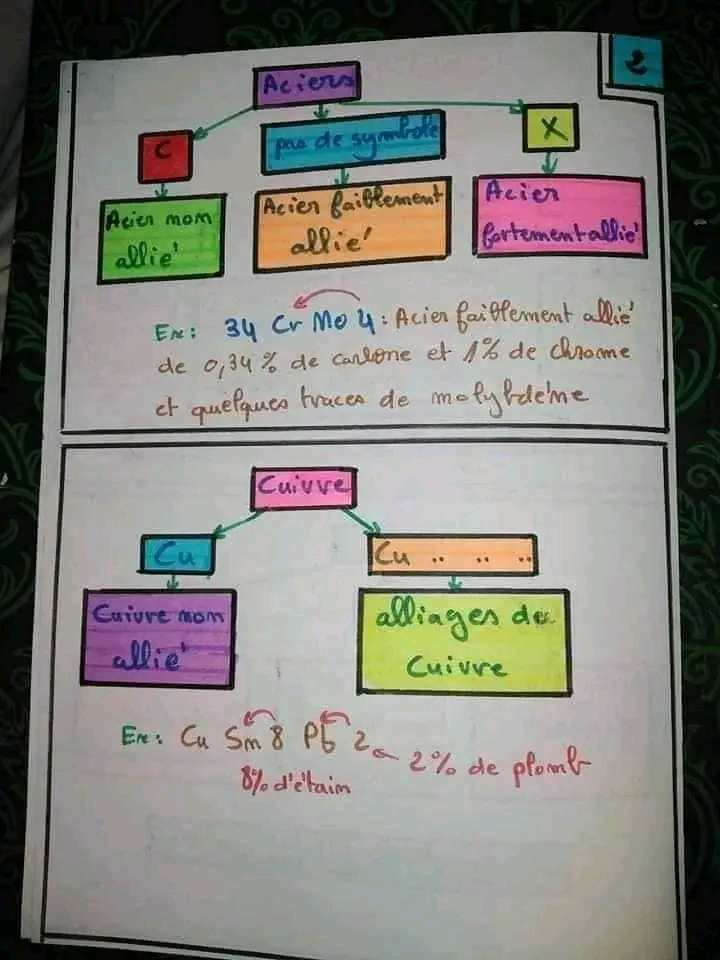 2
Aciers
C
pas de symbole
X
Acier non
allié
Acier faiblement
allié
Acier
fortement allié
Ex: 34 Cr Mo 4: Acier faiblement allié
de 0,34% de carbone et 1% de chrome
et quelques traces de molybdène
Cuivre
Cu
Cu .. .. ..
Cuivre non
allié
alliages de
Cuivre
Ex: Cu Sn 8 Pb 2
2% de plomb
8% d'étain